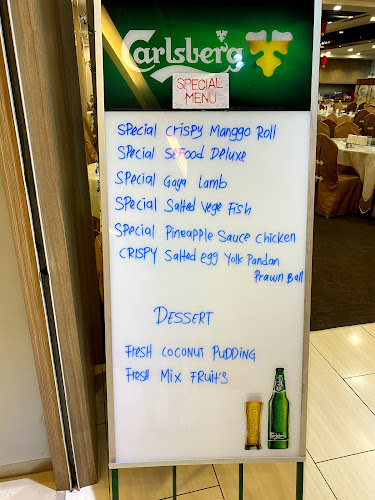 Carlsberg
SPECIAL
MENU
SPecial CRISPY Manggo Roll
SPecial SeFood Deluxe
SPecial Gaya Lamb
SPecial Salted Vege Fish
SPecial Pineapple Sauce Chicken
CRISPY Salted egg Yolk Pandan
Prawn Ball
DESSERT
FResH COCONUT PUDDING
FResh MIX FRUIT'S